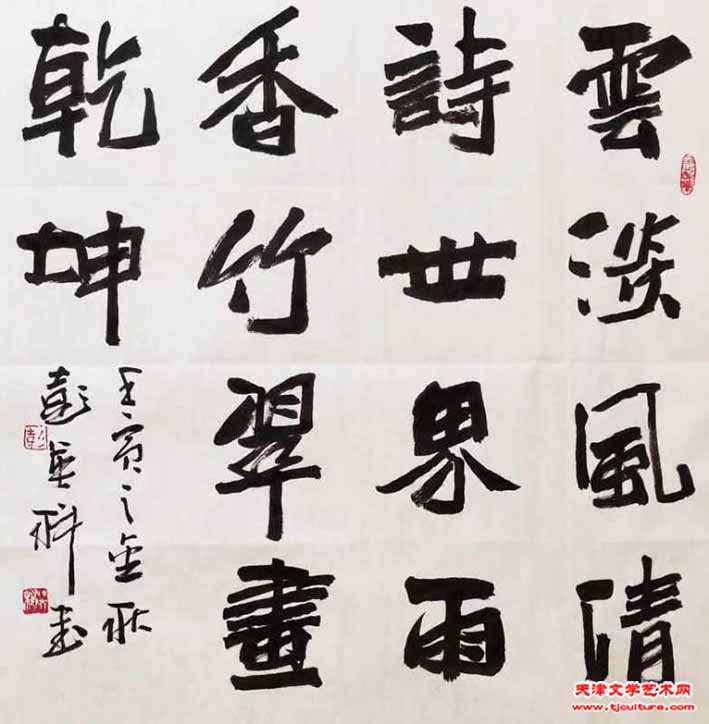 雲淡風清
詩世界雨
香竹翠畫
乾坤
壬寅之金秋
彭英科書
天津文学艺术网
www.tjculture.com